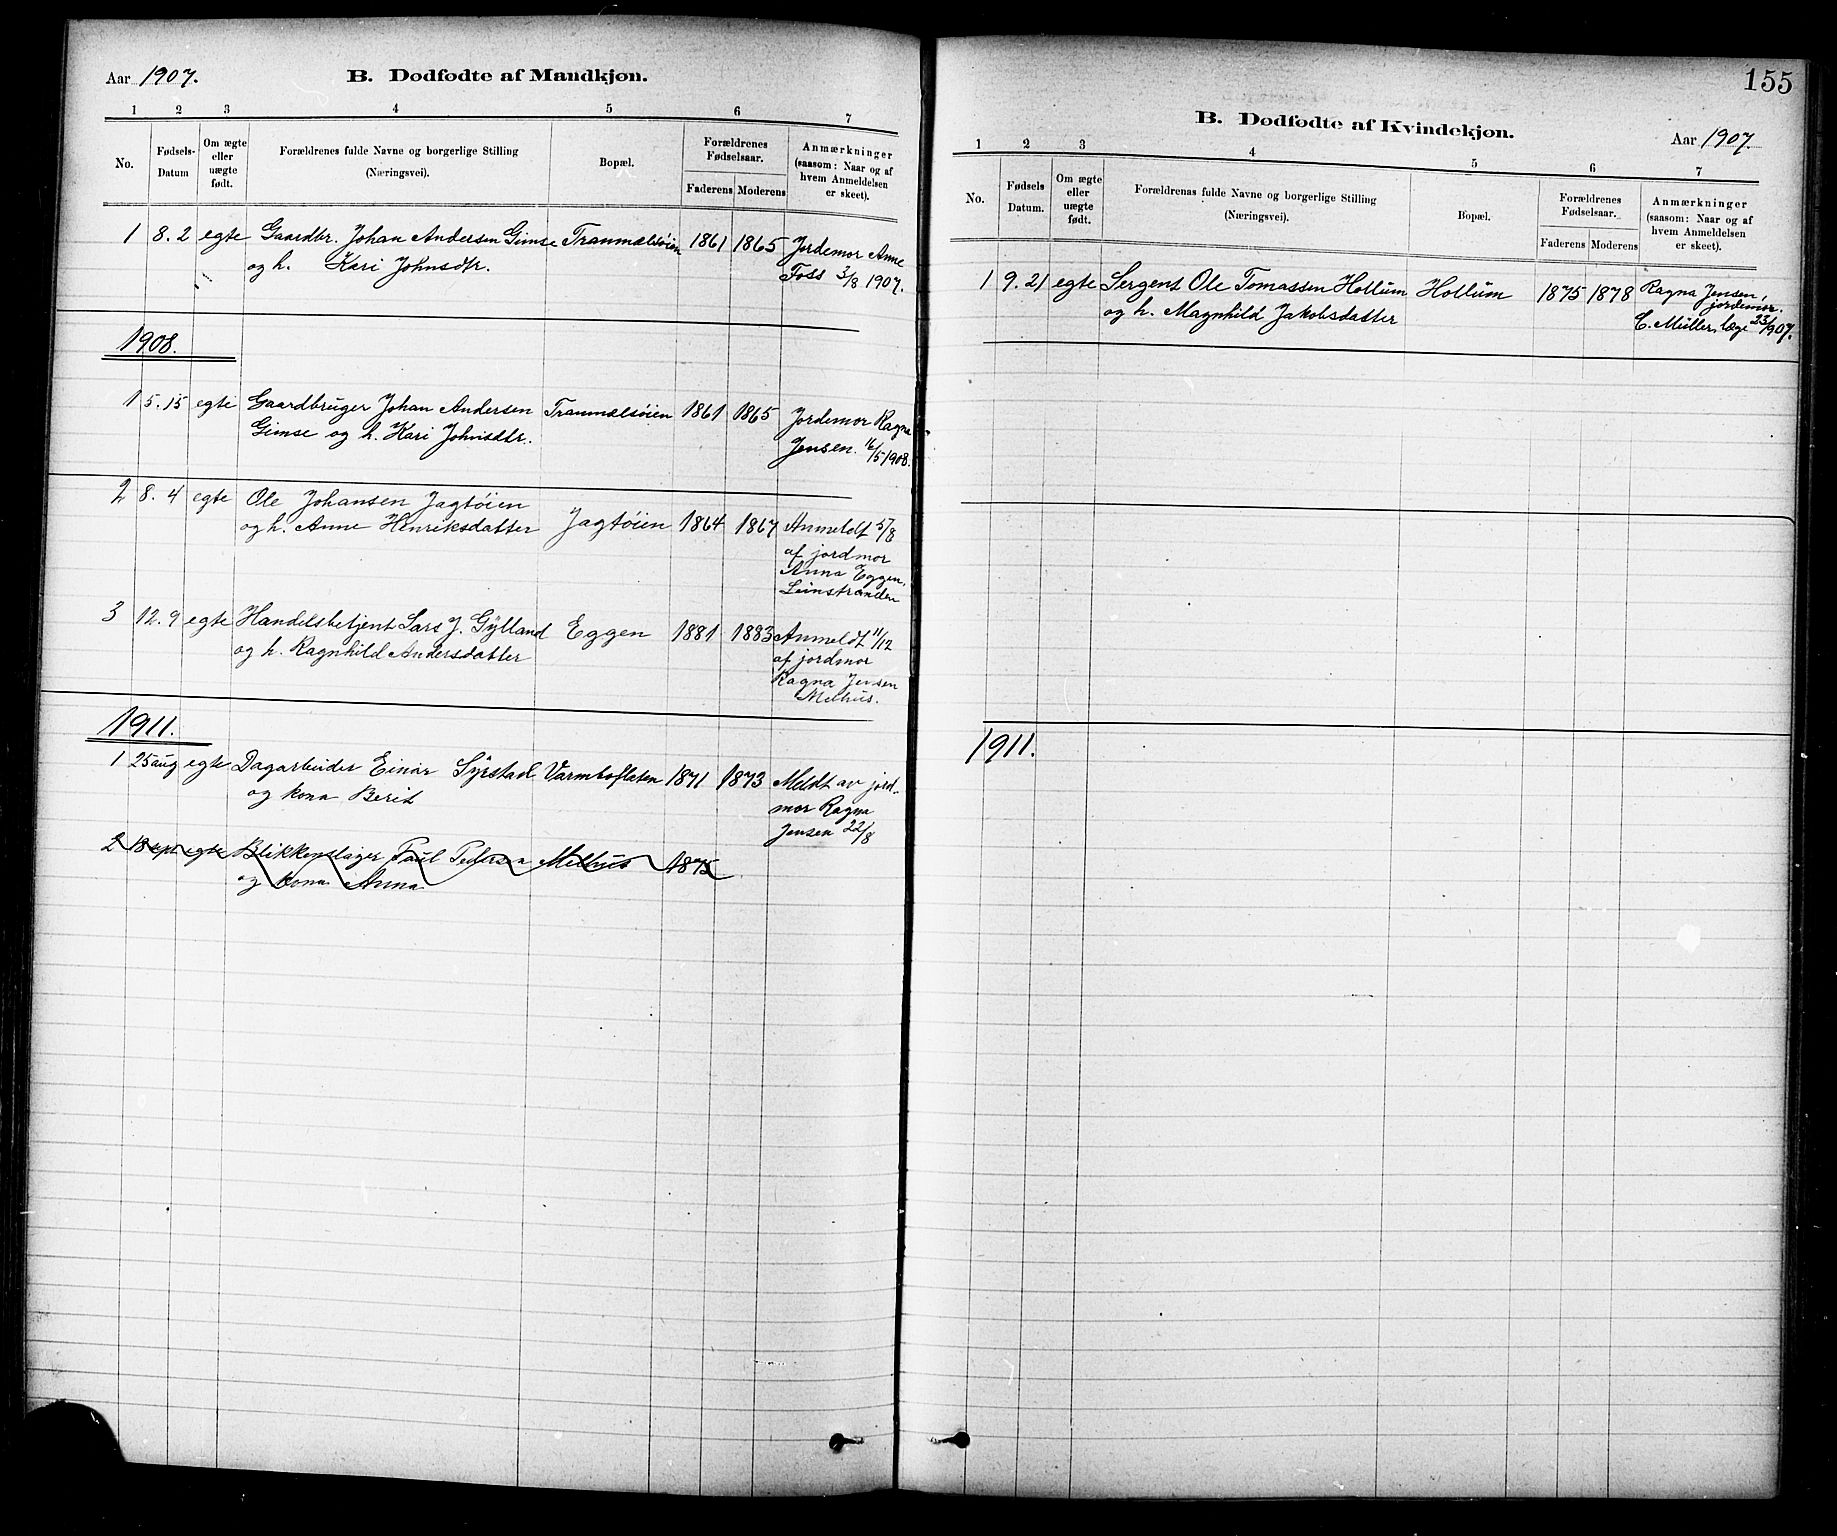 Aar 1907.
B. Dødfødte af Mandkjøn.
1 2 3 4 5 6 7
No.
Fødsels-
Datum
Om ægte
eller
uægte
født.
Forældrenes fulde Navne og borgerlige Stilling
(Næringsvei).
Bopæl.
Forældrenes
Fødselsaar.
Faderens Moderens
Anmærkninger
(saasom: Naar og af
hvem Anmeldelsen
er skeet).
1 8. 2 egte Gaardbr. Johan Andersen Gimse Tranmælsøien 1861 1865 Jordemor Anne
og h. Kari Johnsdtr. Foss 3/8 1907.
1908.
1 5. 15 egte Gaardbruger Johan Andersen Tranmælsøien 1861 1865 Jordemor Ragna
Gimse og h. Kari Johnsdtr. Jensen. 16/5 1908.
2 8. 4 egte Ole Johansen Jagtøien
og h. Anne Henriksdatter Jagtøien 1864 1867 Anmeldt 5/8
af jordmor
Anna Eggen.
Leinstranden
3 12. 9 egte Handelsbetjent Lars J. Gylland Eggen 1881 1883 Anmeldt 11/12
og h. Ragnhild Andersdatter af jordmor
Ragna Jensen
Melhus.
1911.
1 25 aug egte Dagarbeider Einar Syrstad Varmboflaten 1871 1873 Meldt av jord-
og kona Berit mor Ragna
Jensen 22/8
2 18 egte Blikkenslager Paul Pedersen Melhus 1875
og kona Anna
155
B. Dødfødte af Kvindekjøn.
Aar 1907.
1 2 3 4 5 6 7
No.
Fødsels
Datum.
Om ægte
eller
uægte
født.
Forældrenas fulde Navne og borgerlige Stilling
(Næringsvei).
Bopæl.
Forældrenes
Fødselsaar.
Faderens Moderens
Anmærkninger
(saasom: Naar og af
hvem Anmeldelsen
er skeet).
1 9. 21 egte Sergent Ole Tomassen Hollum Hollum 1875 1878 Ragna Jensen,
jordemor.
og h. Magnhild Jakobsdatter C. Müller, læge 23/9 1907.
1911.